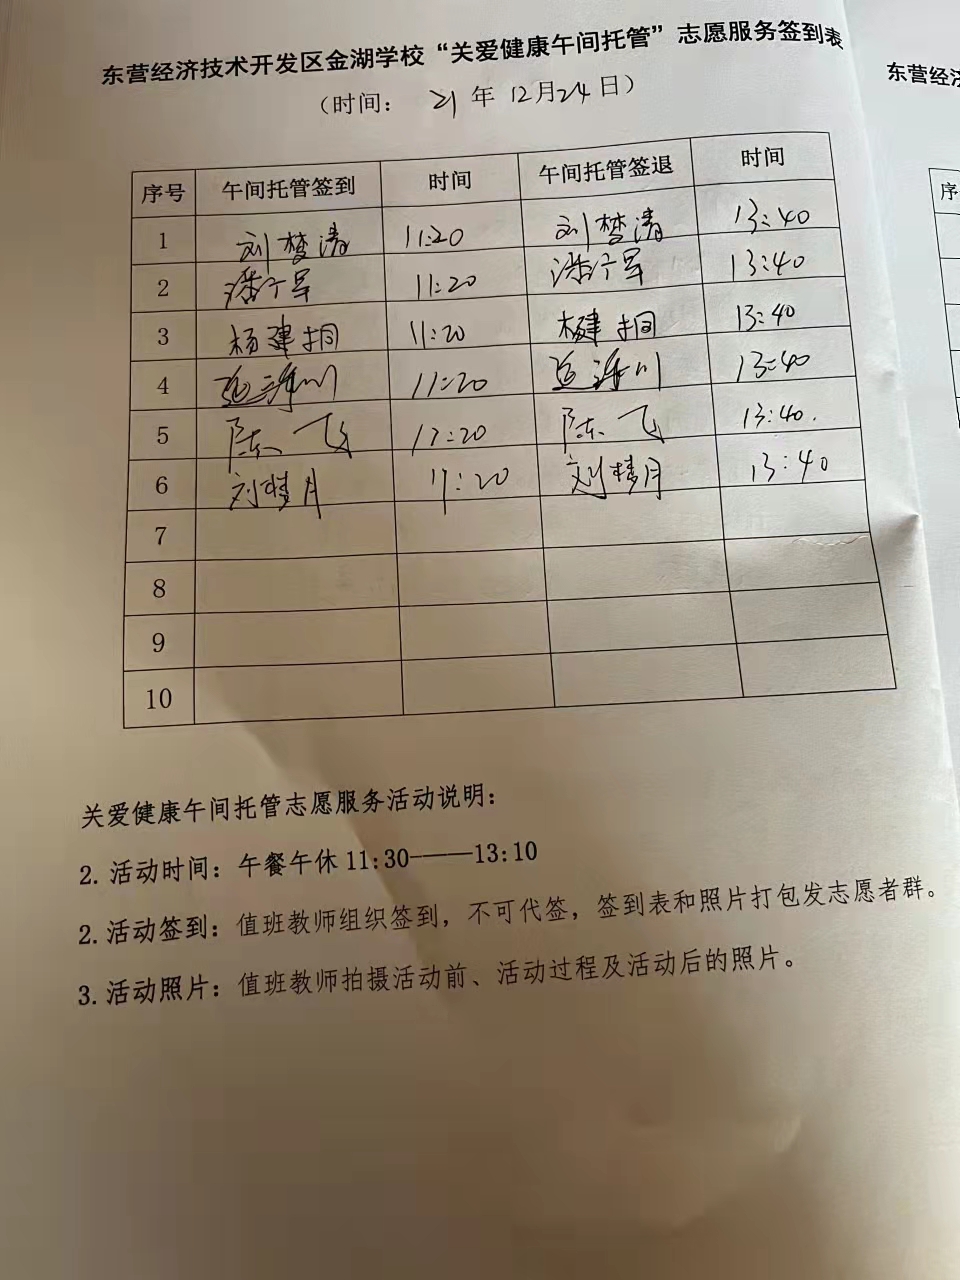 东营经济技术开发区金湖学校“关爱健康午间托管”志愿服务签到表
（时间： 21 年 12月24日）
序号 午间托管签到 时间 午间托管签退 时间
1 刘梦清 11:20 刘梦清 13:40
2 潘宁军 11:20 潘宁军 13:40
3 杨建桐 11:20 杨建桐 13:40
4 11:20 13:40
5 陈飞 11:20 陈飞 13:40.
6 刘楼月 11:20 刘楼月 13:40
7
8
9
10
关爱健康午间托管志愿服务活动说明：
2.活动时间：午餐午休11:30——13:10
2.活动签到：值班教师组织签到，不可代签，签到表和照片打包发志愿者群。
3.活动照片：值班教师拍摄活动前、活动过程及活动后的照片。
东营经济
序